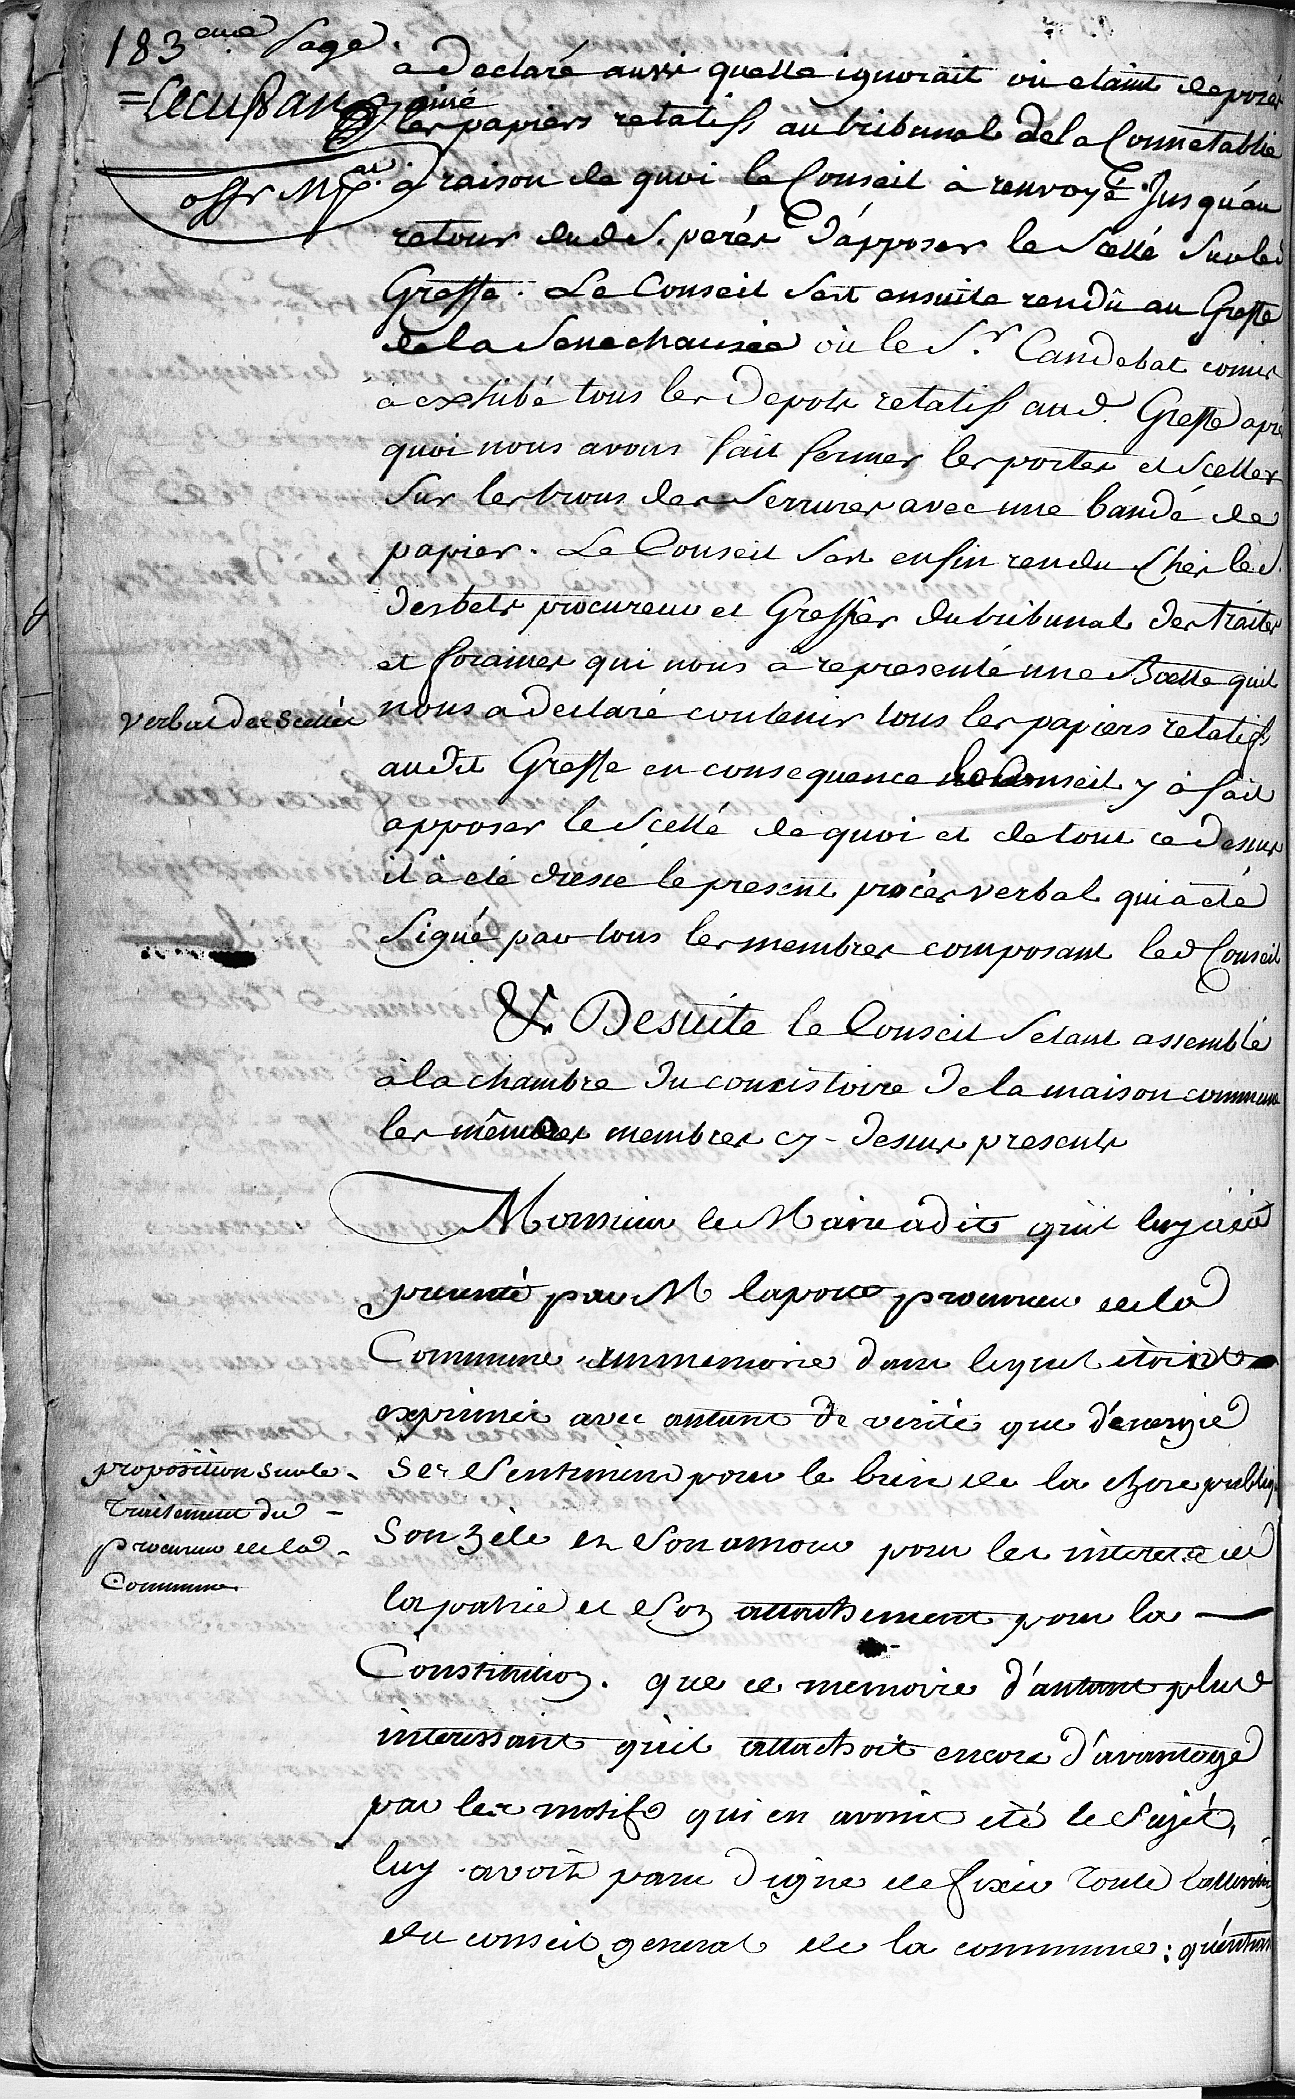 183eme page.
=Lecussan ainé
offr Mpal.
a declaré aussi quelle ignorait où etaint deposés
les papiers relatifs au tribunal de la Connetablie
a raison de quoi le Conseil à renvoyé Jusquau
retour dud S. perés d'apposer le Scellé Surled
Greffe. Le Conseil Sest ensuite rendû au Greffe
de la Senechaussée où le S.r Candebat comis
a exhibé tous les depots relatifs aud. Greffe apré
quoi nous avons fait fermer les portes et Sceller
Sur les trous des Serrures avec une bandé de
papier. Le Conseil Sest enfin rendu Chés le S.
desbets procureur et Greffier du tribunal des traites
et foraines qui nous à representé une Boette quil
verbal des Scellés
nous a declaré contenir tous les papiers relatifs
audit Greffe en consequence le Conseil y à fait
apposer le Scellé de quoi et de tout ce dessus
il à eté dressé le present procés verbal qui a eté
Signé par tous les membres composant led Conseil
& De suite le Conseil Setant assemblé
à la chambre du consistoire de la maison commune
les mêmes membres cy-dessus presents
Monsieur le Maire a dit quil luy a eté
presenté par M laporte procureur de la
Commune un memoire dans lequel étoient
exprimés avec autant de verité que d'energie
proposition sur le
traitement du
procureur de la
Commune
Ses Sentimens pour le bien de la chose publiq
Son zéle et Son amour pour les interets de
la patrie et Son attachement pour la
Constitution. que ce memoire d'autant plus
interessant qu'il attachoit encore d'avantage
par les motifs qui en avoint eté le Sujét,
luy avoit paru digne de fixer toute lattention
du conseil general de la commune: